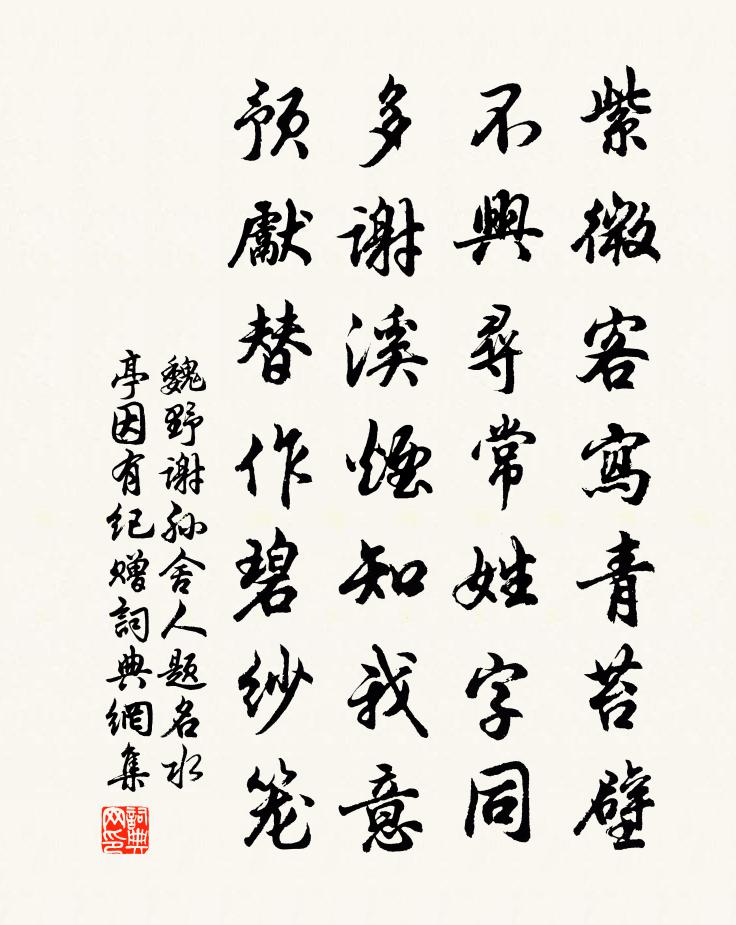 紫微客寫青苔壁
不興尋常姓字同
多謝溪煙知我意
預獻替作碧紗笼
魏野谢孙舍人题名水
亭因有纪赠詞典網集
詞典网印